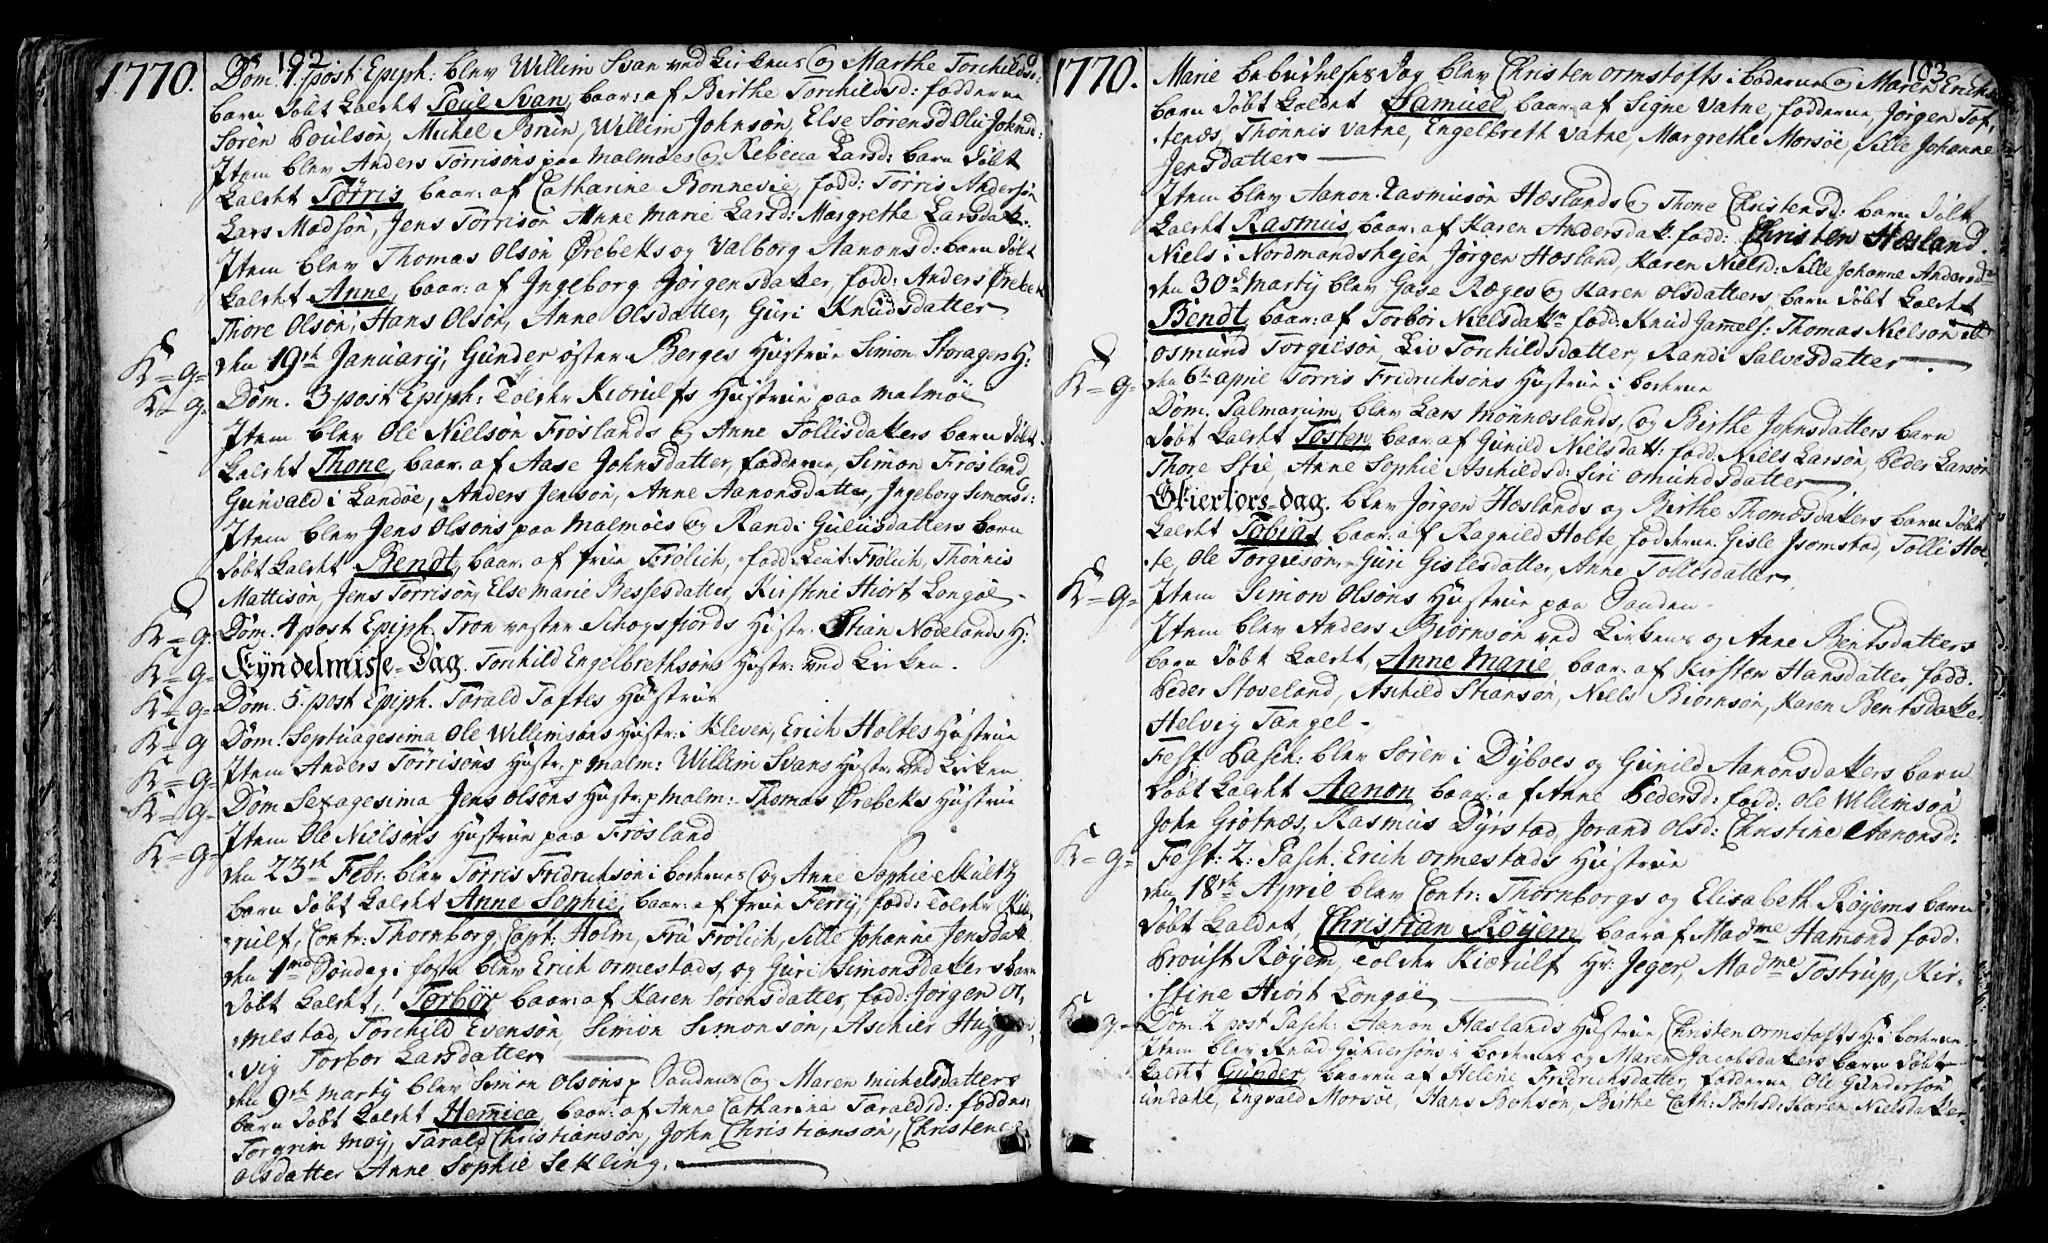 1770.
102
Dom. 1. post Epiph: blev Willim Svan ved Kirkens og Marthe Torchildsd:
barn døbt kaldt Poul Svan, baar: af Birthe Torchildsd: fadderne
Søren Poulsøn, Michel Brun, Willim Johnsøn, Else Sørensd Olu Johnsd:
Item blev Anders Tørrisøns paa Malmøes og Rebecca Larsd: barn døbt
kaldt Tørris, baar: af Catharine Bonnevie, fadd: Tørris Andersøn
Lars Madsøn, Jens Tørrisøn Anne Marie Larsd: Margrethe Larsdatt.
Item blev Thomas Olsøn Ørebeks og Valborg Aanonsd: barn døbt
kaldt Anne, baar: af Ingeborg Jørgensdatter, fadd: Anders Ørebek
Thore Olsøn, Hans Olsøn, Anne Olsdatter, Guri Knudsdatter
K=g= den 19de January, Gunder øster Berges Hustrue Simon Storagers H:
K=g= Dom. 3 post Epiph: Tolder Kiørulfs Hustrue paa Malmøe
Item blev Ole Nielsøn Frøslands og Anne Tollisdatters barn døbt
kaldt Thone, baar: af Aase Johnsdatter, fadderne, Simon Frøsland
Gunvald i Landøe, Anders Jensøn, Anne Aanonsdatter, Ingeborg Simonsd:
Item blev Jens Olsøns paa Malmøes og Randi Gulusdatters barn
døbt kaldt Bendt, baar: af frue Frølich, fadd: Leut: Frølich, Thønnis
Mattisøn, Jens Tørrisøn, Else Marie Bessesdatter, Kirstine Hiort Longøe
K=g= Dom. 4 post Epiph. Tron vester Schogsfiords Hustr. Stian Nodelands H:
K=g= Kyndelmisse-Dag. Torchild Engelbrethsøns Hustr: ved Kirken.
K=g= Dom. 5. post Epiph. Tarald Toftes Hustrue
K=g Dom. Septuagesima Ole Willimsøns Hustr: i Kleven, Erich Holtes Hustrue
K=g= Item Anders Tørrisøns Hustr. p Malm: Willim Svans Hustr. ved Kirken
K=g= Dom Sexagesima Jens Olsøns Hustr. p Malm: Thomas Ørebeks Hustrue
K=g= Item Ole Nielsøns Hustrue paa Frøsland
den 23de Febr: blev Torris Fridrichsøn i borhenes og Anne Sophie Skultz
barn døbt kaldt Anne Sophie, baar: af frue Ferry, fadd: Tolder Kiø-
rulf, Contr: Thornborg, Capt: Holm, Fru Frølich, Sille Johanne Jensdatt
den 1ma Søndag i faste blev Erich Ormestads, og Guri Simonsdatters barn
døbt kaldt, Torbør, baar: af Karen Sørensdatter, fadd: Jørgen Or-
mestad, Torchild Evensøn, Simon Simonsøn, Aschier
vig Torbor Larsdatter
den 9de Marty blev Simon Olsøns p Sandens og Maren Michelsdatters
barn døbt kaldt Hemica, baar: af Anne Catharina Taraldsd: faddne,
Torgrim Moy, Tarald Christiansøn, John Christiansøn, Christence
Olsdatter Anne Sophie Sekling.

1770.
103
Marie bebudelses Dag blev Christen Ormstofts i boderne og Maren Erichs
barn døbt kaldet Samuel, baar: af Signe Vatne, fadderne, Jørgen Tof-
tenæs, Thønnis Vatne, Engelbreth Vatne, Margrethe Morsøe, Sille Johanne
Jensdatter
Item blev Aanon Rasmusøn Hæslands og Thone Christensd: barn døbt
kaldt Rasmus, baar: af Karen Andersdatt: fadd: Christen Hæsland.
Niels i Nordmandshejen Jørgen Hæsland, Karen Nielsd: Sille Johanne Andersd
den 30te Marty blev Gase Ræges og Karen Olsdatters barn døbt kaldt
Bendt, baar: af Torbør Nielsdatter fadd: Knud Gamels: Thomas Nielsøn
Osmund Torgiesøn, Liv Torchildsdatter, Randi Salvesdatter
K=g= den 6te april Torris Fridrichsøns Hustrue i borhene
Dom. Palmarum, blev Lars Mønnæslands, og Birthe Johnsdatters barn
døbt kaldt Tosten, baar: af Gunild Nielsdatt: fadd: Niels Larsøn, Peder Larsøn
Thore Stie, Anne Sophie Aschildsd: Siri Omundsdatter
Skiertors-dag. blev Jørgen Hæslands og Birthe Thomæsdatters barn døbt
kaldt Tobias, baar: af Ragnild Holte, fadderne. Gisle Isomstad, Tolli Hol-
te, Ole Torgiesøn, Guri Gislesdatter, Anne Tollisdatter.
K=g= Item Simon Olsøns Hustrue paa Sanden
Item blev Anders Biørnsøn ved Kirkens og Anne Bentsdatters
barn døbt kaldt, Anne Marie baar: af Kirsten Hansdatter, fadd:
Peder Stoveland, Aschild Stiansøn, Niels Biørnsøn, Karen Bentsdatter
Helvig Tangel.
Fest Pasch: blev Søren i Dyboes og Gunild Aanonsdatters barn
døbt kaldt Aanon baar: af Anne Pedersd: fadd: Ole Willimsøn
John Grøtnæs, Rasmus Dyrstad, Jorand Olsd: Christine Aanonsd:
K=g= Fest: 2: Pasch. Erich Ormestads Hustrue
den 18de April blev Contr: Thornborgs og Elisabeth Røyems barn
døbt kaldet, Christian Røyem, baar af Madme Hamond fadd:
Proust Røyem, Tolder Kiærulf Hr: Jeger, Madme Tostrup, Kir-
stine Hiort Longøe
K=g= Dom. 2 post Pasch: Aanon Hæslands Hustrue Christen Ormstofts H: i borhene
Item blev Knud Gundersøns i borhenes og Maren Jacobsdatters barn døbt
kaldt Gunder, baaren af Helene Fridrichsdatter, fadderne, Ole Gundersøn
undahl, Engvald Morsøe, Hans Bohsøn, Birthe Cath: Bohsd: Karen Nielsdatter